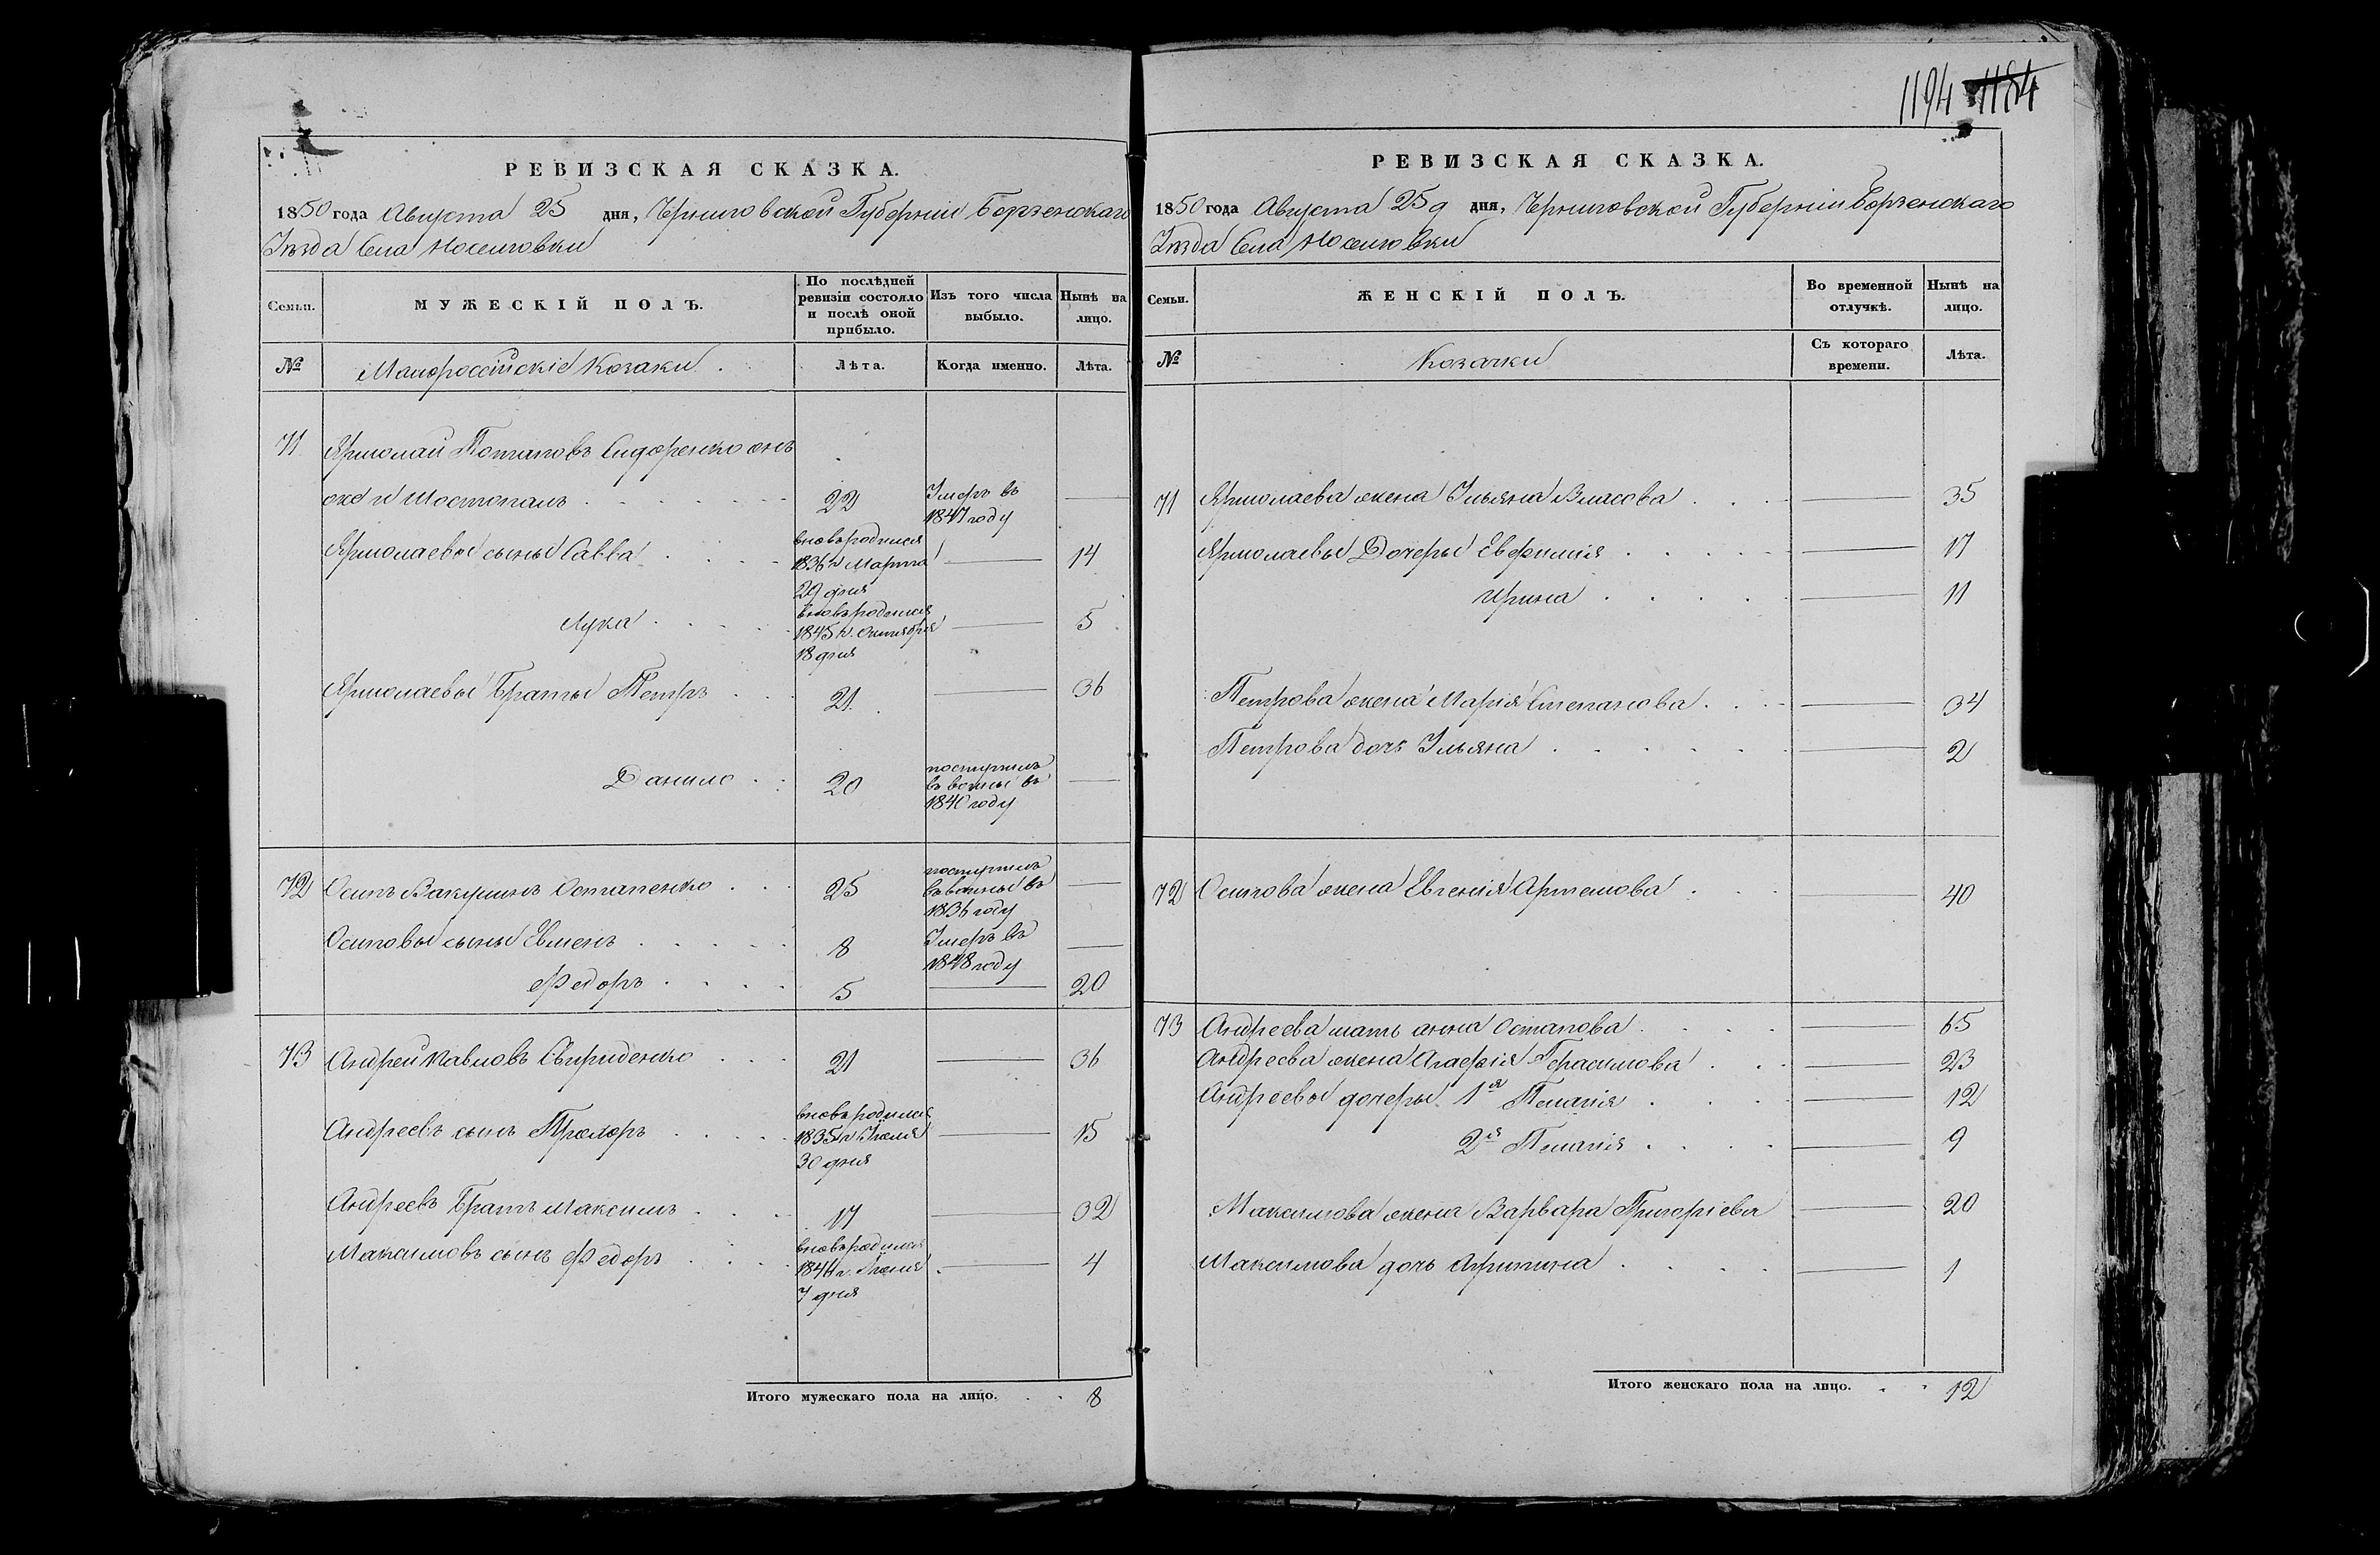 1194 1184
РЕВИЗСКАЯ СКАЗКА.
1850 года Августа 25 дня, Черниговской Губерніи Борзенскаго
Уѣзда Села Носеловки
Семьи. МУЖЕСКІЙ ПОЛЪ. По послѣдней ревизіи состояло и послѣ оной прибыло. Изъ того числа выбыло. Нынѣ на лицо.
№ Малороссійскіе Козаки. Лѣта. Когда именно. Лѣта.
71 Ярмолай Потаповъ Сидоренко онъ
же и Шостопалъ 22 Умеръ въ 1847 году
Ярмолаевы сыны Савва вновъродился 1836 г. Марта 29 дня 14
Лука вновърродился 1845 г. Октября 18 дня 5
Ярмолаевы Браты Петръ 21 36
Данило 20 поступилъ въ воины въ 1840 году
72 Осипъ Вакулинъ Остапенко 25 поступилъ въ воины въ 1836 году
Осиповы сыны Евменъ 8 Умеръ въ 1848 году
Федоръ 5 20
73 Андрей Павловъ Свириденко 21 36
Андреевъ сынъ Прохоръ вновърродился 1835 г. Іюля 30 дня 15
Андреевъ Братъ Максимъ 17 32
Максимовъ сынъ Федоръ вновърродился 1846 г. 7 дня 4
Итого мужескаго пола на лицо. 8
РЕВИЗСКАЯ СКАЗКА.
1850 года Августа 25 д дня, Черниговской Губерніи Борзенскаго
Уѣзда Села Носеловки
Семьи. ЖЕНСКІЙ ПОЛЪ. Во временной отлучкѣ. Нынѣ на лицо.
№ Козачки Съ котораго времени. Лѣта.
71 Ярмолаева жена Ульяна Власова 35
Ярмолаевы Дочеры Евфимія 17
Ирина 11
Петрова жена Марія Степанова 34
Петрова дочь Ульяна 2
72 Осипова жена Евгенія Артемова 40
73 Андреева мать анна Остапова 65
Андреева жена Агафія Герасимова 23
Андреевы дочеры 1я Пелагія 12
2я Пелагія 9
Максимова жена Варвара Григоріева 20
Максимова дочь Агрипина 1
Итого женскаго пола на лицо. 12